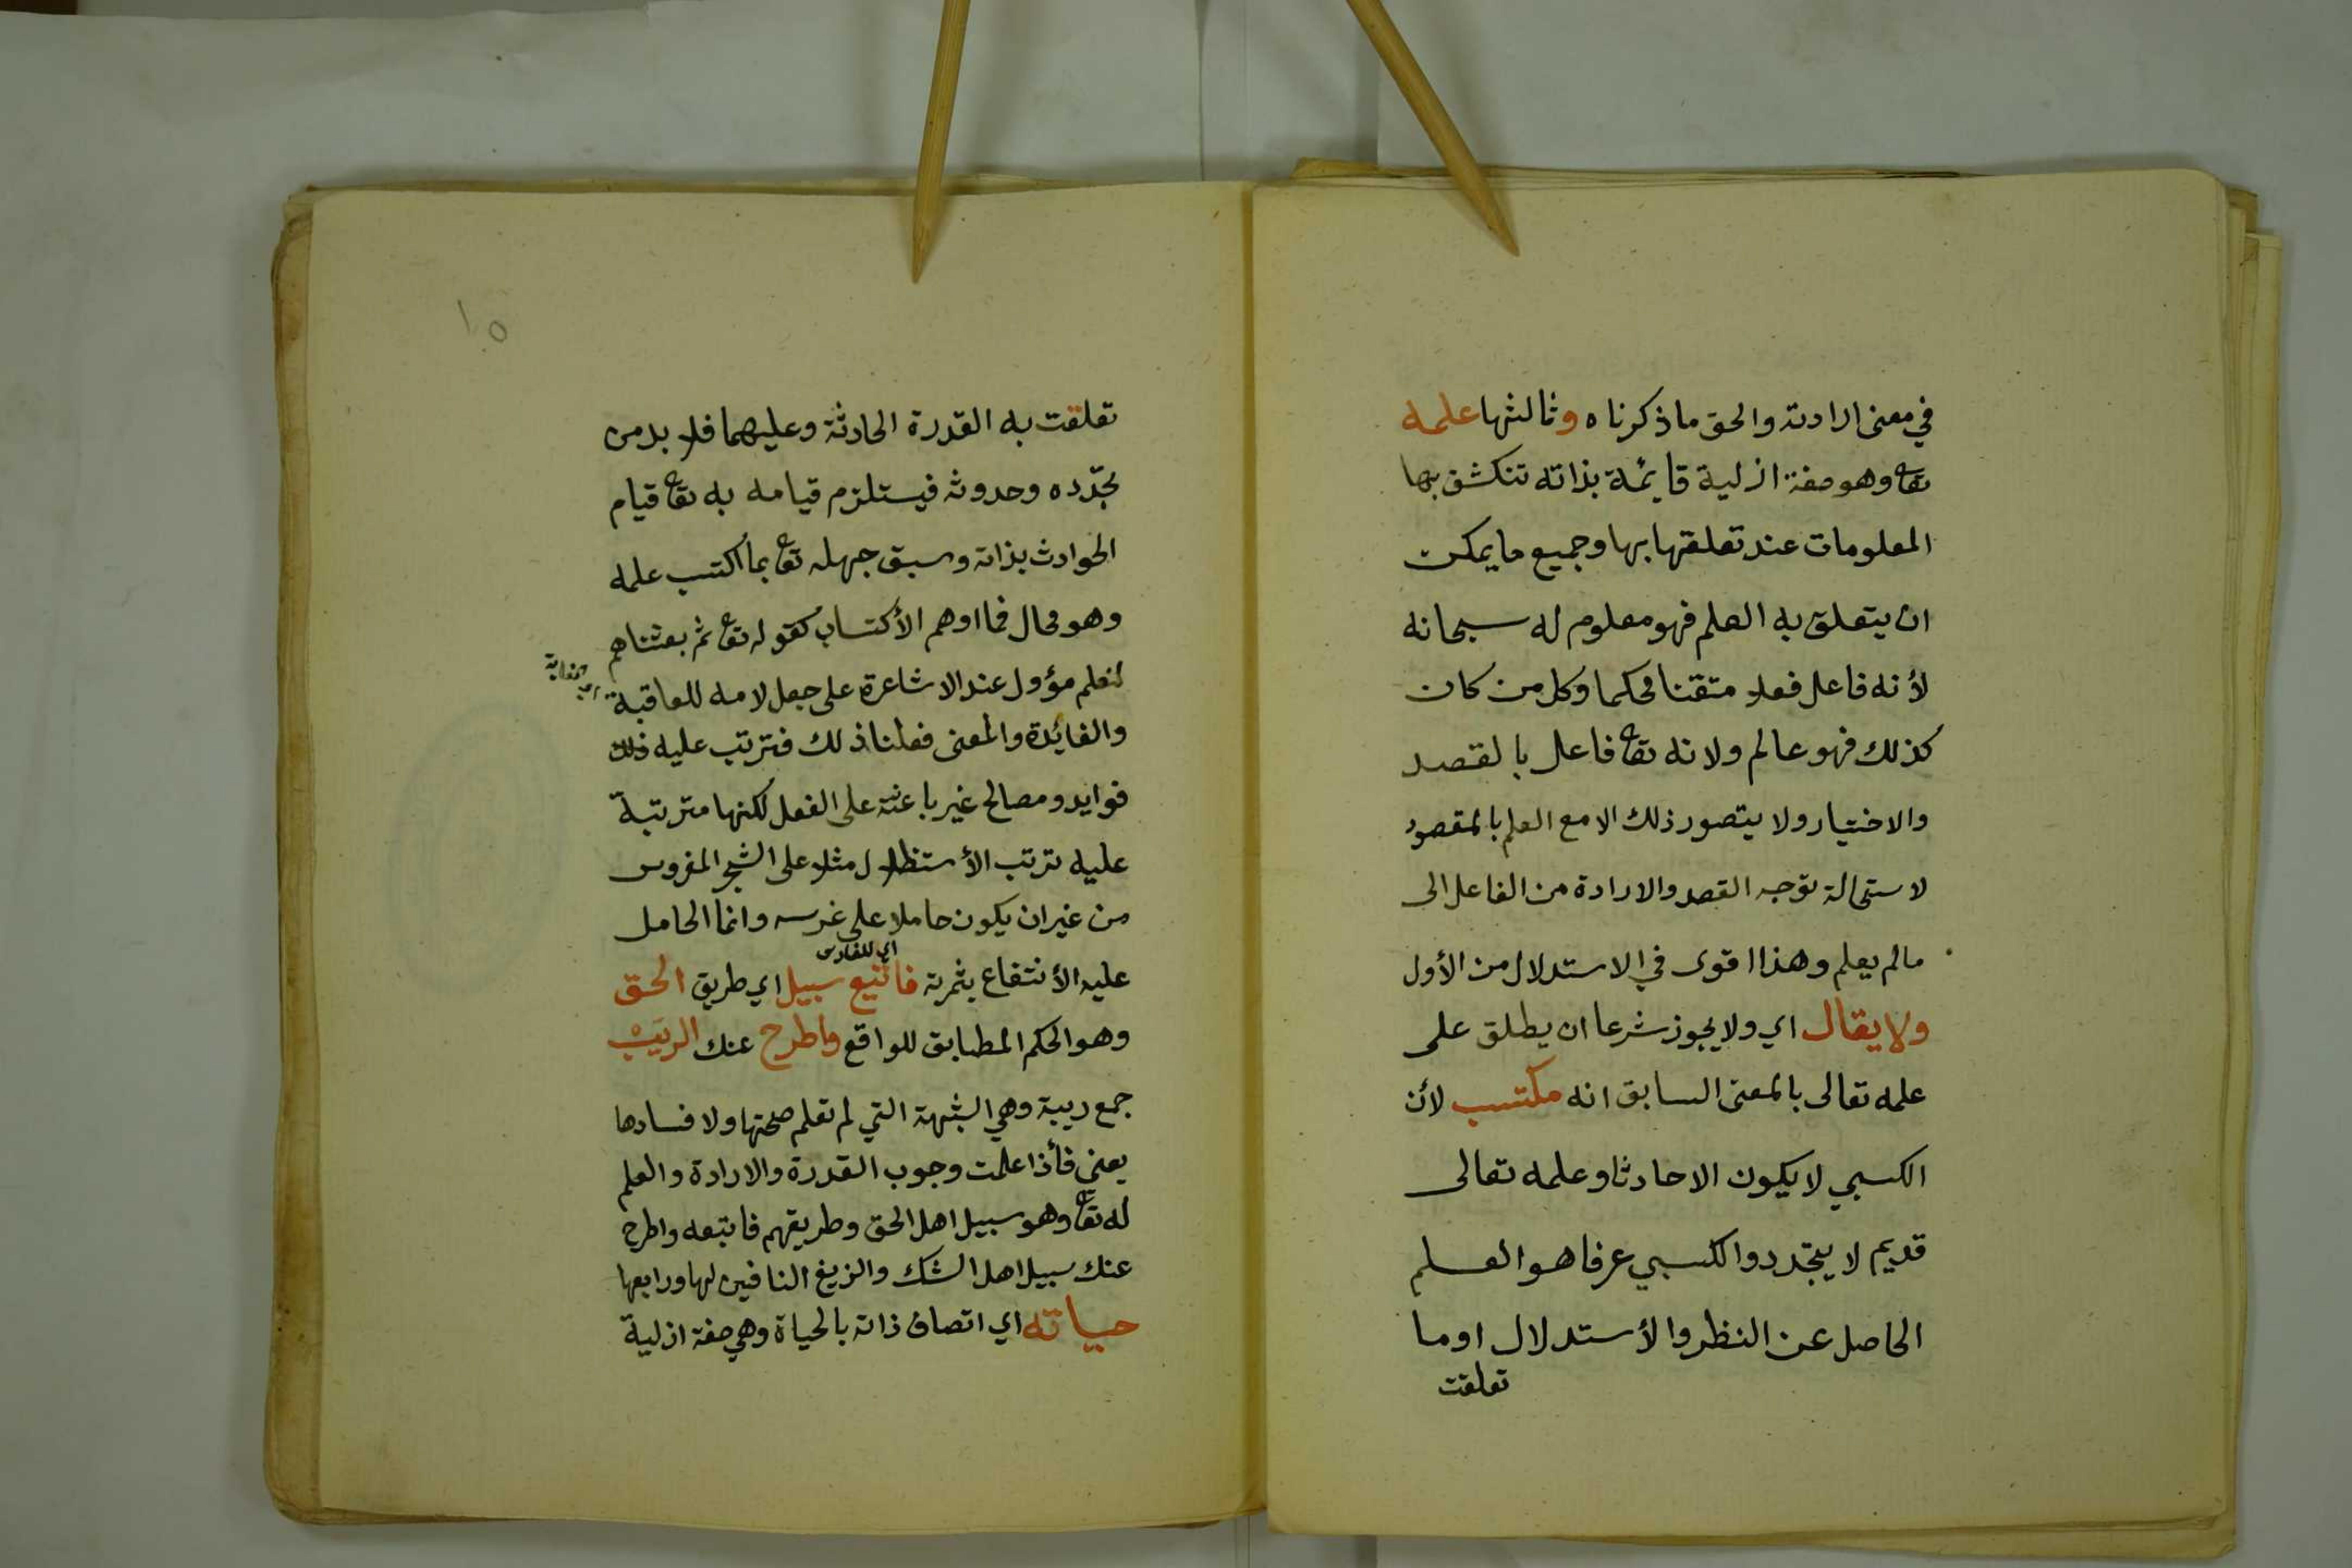 في معنى ارادته والحق ما ذكرناه وثالثها علمه
تعا وهو صفة ازلية قايمة بذاته تنكشف بها
المعلومات عند تعلقها بها وجميع ما يمكن
ان يتعلق به العلم فهو معلوم له سبحانه
لأنه فاعل فعلا متقنا محكما وكل من كان
كذلك فهو عالم ولانه تعا فاعل بالقصد
والاختيار ولا يتصور ذلك الا مع العلم بالمقصود
لاستحالة توجه القصد والارادة من الفاعل الى
مالم يعلم وهذا اقوى في الاستدلال من الأول
ولا يقال اي ولا يجوز شرعا ان يطلق على
علمه تعالى بالمعنى السابق انه مكتسب لأن
الكسبي لا يكون الا حادثا وعلمه تعالى
قديم لا يتجدد والكسبي عرفا هو العلم
الحاصل عن النظر والأستدلال اوما
تعلقت
١٥
تعلقت به القدرة الحادثة وعليهما فلا بد من
تجدده وحدوثه فيستلزم قيامه به تعا قيام
الحوادث بذاته وسبق جهله تعا بما اكتسب علمه
وهو محال فما اوهم الأكتساب كقوله تعا ثم بعثناهم
لنعلم مؤول عند الاشاعرة على جعل لامه للعاقبة
والفائدة والمعنى فعلنا ذلك فترتب عليه ذلك
فوايد ومصالح غير باعثة على الفعل لكنها مترتبة
عليه ترتب الأستظلال مثلا على الشجر المغروس
من غير ان يكون حاملا على غرسه وانما الحامل
اي للغارس
عليه الأنتفاع بثمرته فاتبع سبيل اي طريق الحق
وهو الحكم المطابق للواقع واطرح عنك الريب
جمع ريبة وهي الشبهة التي لم تعلم صحتها ولا فسادها
يعني فأذا علمت وجوب القدرة والارادة والعلم
له تعا وهو سبيل اهل الحق وطريقهم فاتبعه واطرح
عنك سبيل اهل الشك والزيغ النافين لها ورابعها
حياته اي اتصاف ذاته بالحياة وهي صفة ازلية